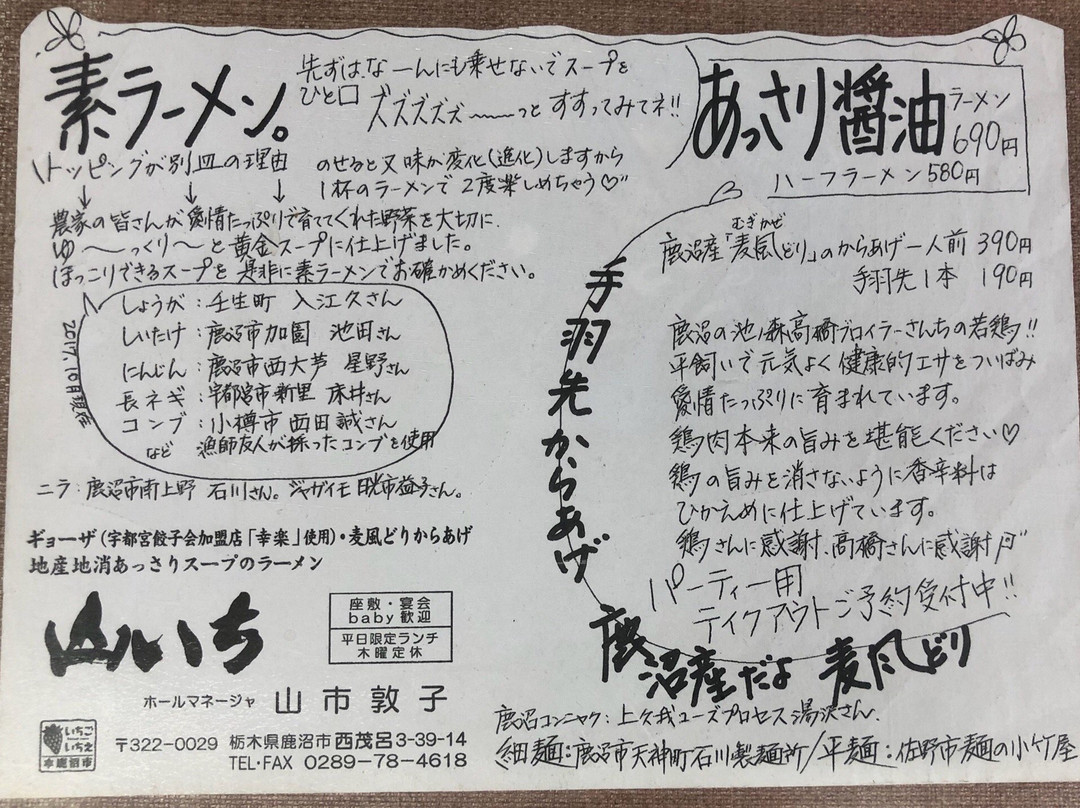 素ラーメン。
先ずは、なーんにも乗せないでスープを
ひと口 ズズズズズ〜〜〜っと すすってみてネ!!
トッピングが別皿の理由
のせると又味が変化(進化)しますから
1杯のラーメンで2度楽しめちゃう♡"
↓ ↓ ↓
農家の皆さんが愛情たっぷりで育ててくれた野菜を大切に、
ゆ〜〜っくり〜と黄金スープに仕上げました。
ほっこりできるスープを是非に素ラーメンでお確かめください。
しょうが:壬生町 入江久さん
しいたけ:鹿沼市加園 池田さん
にんじん:鹿沼市西大芦 星野さん
長ネギ:宇都宮市新里 床井さん
コンブ:小樽市 西田誠さん
など 漁師友人が採ったコンブを使用
2017.10月現在
ニラ:鹿沼市南上野 石川さん。ジャガイモ 日光市益子さん。
ギョーザ(宇都宮餃子会加盟店「幸楽」使用)・麦風どりからあげ
地産地消あっさりスープのラーメン
山いち
座敷・宴会
baby歓迎
平日限定ランチ
木曜定休
ホールマネージャ 山市敦子
いちご
いちえ
鹿沼市
〒322-0029 栃木県鹿沼市西茂呂3-39-14
TEL・FAX 0289-78-4618
あっさり醤油ラーメン
690円
ハーフラーメン 580円
むぎかぜ
鹿沼産「麦風どり」のからあげ一人前 390円
手羽先1本 190円
手羽先からあげ
鹿沼の池ノ森高橋ブロイラーさんちの若鶏!!
平飼いで元気よく健康的エサをついばみ
愛情たっぷりに育まれています。
鶏肉本来の旨みを堪能ください♡
鶏の旨みを消さないように香辛料は
ひかえめに仕上げています。
鶏さんに感謝、高橋さんに感謝
パーティー用
テイクアウトご予約受付中!!
鹿沼産だよ 麦風どり
鹿沼コンニャク:上久我ユーズプロセス湯沢さん.
細麺:鹿沼市天神町石川製麺所/平麺:佐野市麺の小竹屋